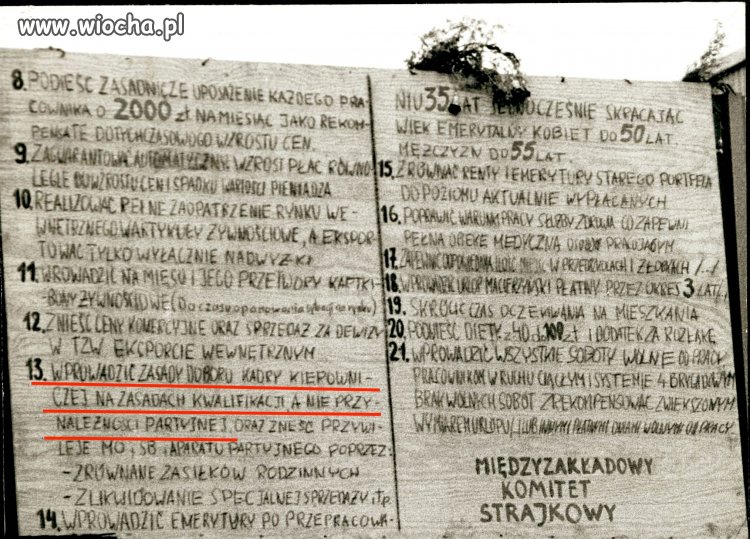 www.wiocha.pl
8. PODIEŚĆ ZASADNICZE UPOSAŻENIE KAŻDEGO PRA-
COWNIKA O 2000 zł NA MIESIĄC JAKO REKOM-
PENSATE DOTYCHCZASOWEGO WZROSTU CEN.
9. ZAGWARANTOWAĆ AUTOMATYCZNY WZROST PŁAC RÓWNO-
LEGLE DO WZROSTU CEN I SPADKU WARTOŚCI PIENIĄDZA
10. REALIZOWAĆ PEŁNE ZAOPATRZENIE RYNKU WE-
WNĘTRZNEGO W ARTYKUŁY ŻYWNOŚCIOWE, A EKSPOR-
TOWAĆ TYLKO WYŁĄCZNIE NADWYŻKI
11. WROWADZIĆ NA MIĘSO I JEGO PRZETWORY KARTKI-
BONY ŻYWNOŚCIOWE (Do czasu opanowania sytuacji na rynku)
12. ZNIEŚĆ CENY KOMERCYJNE ORAZ SPRZEDAŻ ZA DEWIZY
W TZW. EKSPORCIE WEWNĘTRZNYM
13. WPROWADZIĆ ZASADY DOBORU KADRY KIEROWNI-
CZEJ NA ZASADACH KWALIFIKACJI, A NIE PRZY-
NALEŻNOŚCI PARTYJNEJ, ORAZ ZNEŚĆ PRZYWI-
LEJE MO i SB i APARATU PARTYJNEGO POPRZEZ:
-ZRÓWNANE ZASIŁKÓW RODZINNYCH
-ZLIKWIDOWANIE SPECJALNEJ SPRZEDAŻY i.t.p.
14. WPROWADZIĆ EMERYTURY PO PRZEPRACOWA-
NIU 35 LAT JEDNOCZEŚNIE SKRACAJĄC
WIEK EMERYTALNY KOBIET DO 50 LAT.
MĘŻCZYZN DO 55 LAT.
15. ZRÓWNAĆ RENTY I EMERYTURY STAREGO PORTFELA
DO POZIOMU AKTUALNIE WYPŁACANYCH
16. POPRAWIĆ WARUNKI PRACY SŁUŻBY ZDROWIA CO ZAPEWNI
PEŁNĄ OPIEKE MEDYCZNĄ OSOBOM PRACUJĄCYM.
17. ZAPEWNIĆ ODPOWIEDNIĄ ILOŚĆ MIEJSC W PRZEDSZKOLACH I ŻŁOBKACH /../
18. WPROWADZIĆ URLOP MACIERZYŃSKI PŁATNY PRZEZ OKRES 3 LAT /
19. SKRÓCIĆ CZAS OCZEKIWANIA NA MIESZKANIA
20. PODNIEŚĆ DIETY z 40 do 100 zł I DODATEK ZA ROZŁĄKĘ
21. WPROWADZIĆ WSZYSTKIE SOBOTY WOLNE OD PRACY
PRACOWNIKOM W RUCHU CIĄGŁYM I SYSTEMIE 4 BRYGADOWYM
BRAK WOLNYCH SOBÓT ZREKOMPENSOWAĆ ZWIĘKSZONYM
WYMIAREM URLOPU / LUB INNYMI PŁATNYMI DNIAMI WOLNYMI OD PRACY
MIĘDZYZAKŁADOWY
KOMITET
STRAJKOWY